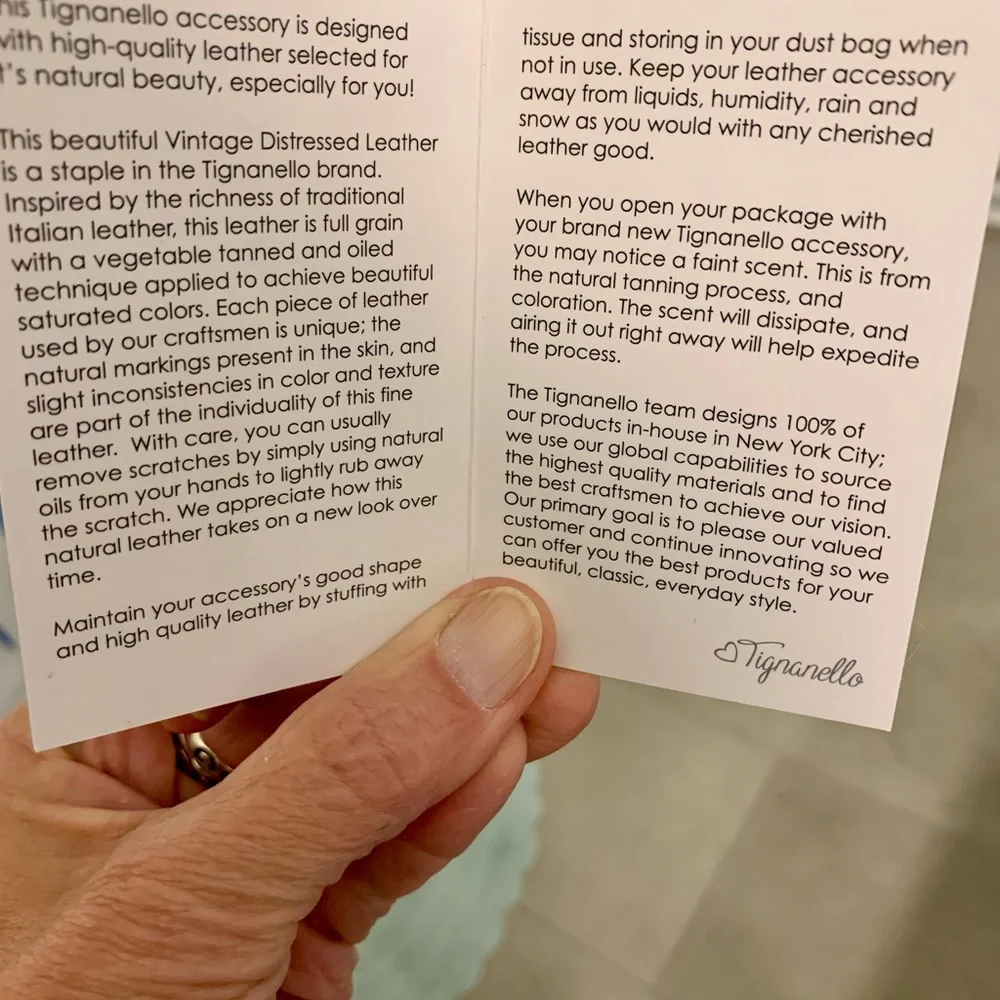 This Tignanello accessory is designed
with high-quality leather selected for
it's natural beauty, especially for you!
This beautiful Vintage Distressed Leather
is a staple in the Tignanello brand.
Inspired by the richness of traditional
Italian leather, this leather is full grain
with a vegetable tanned and oiled
technique applied to achieve beautiful
saturated colors. Each piece of leather
used by our craftsmen is unique; the
natural markings present in the skin, and
slight inconsistencies in color and texture
are part of the individuality of this fine
leather. With care, you can usually
remove scratches by simply using natural
oils from your hands to lightly rub away
the scratch. We appreciate how this
natural leather takes on a new look over
time.
Maintain your accessory's good shape
and high quality leather by stuffing with
tissue and storing in your dust bag when
not in use. Keep your leather accessory
away from liquids, humidity, rain and
snow as you would with any cherished
leather good.
When you open your package with
your brand new Tignanello accessory,
you may notice a faint scent. This is from
the natural tanning process, and
coloration. The scent will dissipate, and
airing it out right away will help expedite
the process.
The Tignanello team designs 100% of
our products in-house in New York City;
we use our global capabilities to source
the highest quality materials and to find
the best craftsmen to achieve our vision.
Our primary goal is to please our valued
customer and continue innovating so we
can offer you the best products for your
beautiful, classic, everyday style.
Tignanello